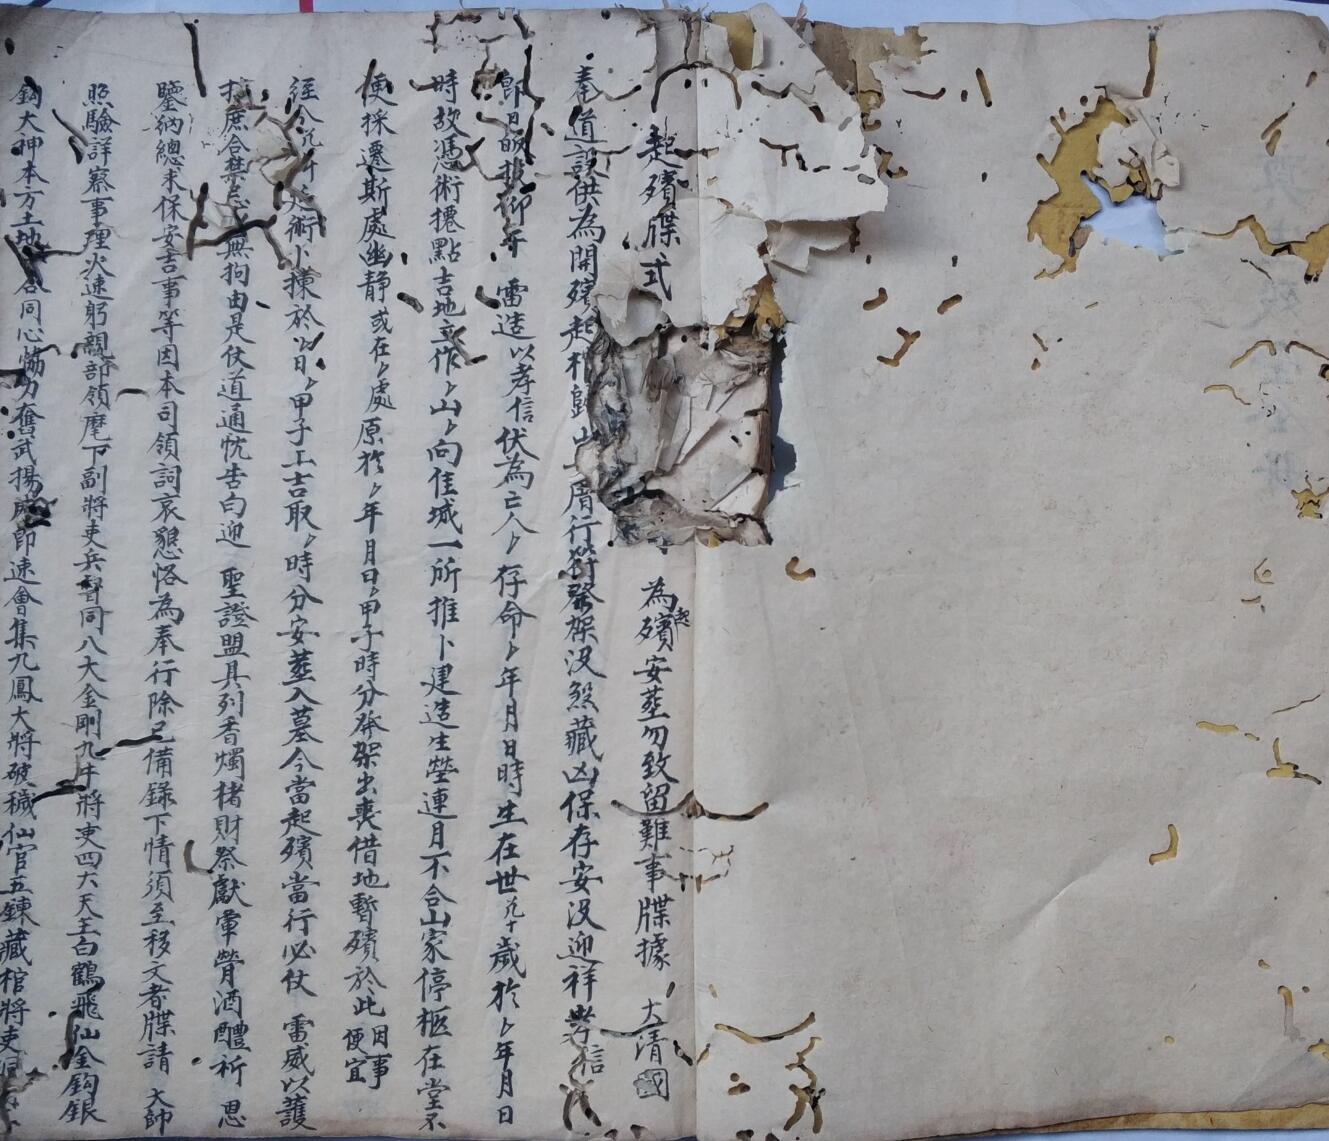 起殯牒式
為起殯安塟勿致留難事牒據 大清國
奉道設供為開殯起柩歸山厝行符發架没煞藏凶保存安没迎祥孝信
即日皈投仰干 雷造以孝信伏為亡人〻存命〻年月日時生在世几十歲於〻年月日
時故憑術擇點吉地立作〻山〻向佳城一所推卜建造生塋連月不合山家停柩在堂不
便採遷斯處幽静或在〻處原於〻年月日〻甲子時分發架出喪借地暫殯於此因事便宜
經今几年 術卜擇於〻日〻甲子工吉取〻時分安塟入墓今當起殯當行必仗 雷威以護
庶令禁忌無拘由是仗道通忱告白迎 聖證盟具列香燭楮財祭獻葷膋酒醴祈 恩
鑒納總求保安吉事等因本司領詞哀懇恪為奉行除已備錄下情須至移文者牒請 大帥
照驗詳察事理火速躬親部領麾下副將吏兵督同八大金剛九牛將吏四大天王白鶴飛仙金鈎銀
鈎大神本方土地合同心協力奮武揚威即速會集九鳳大將破穢仙官五錬藏棺將吏